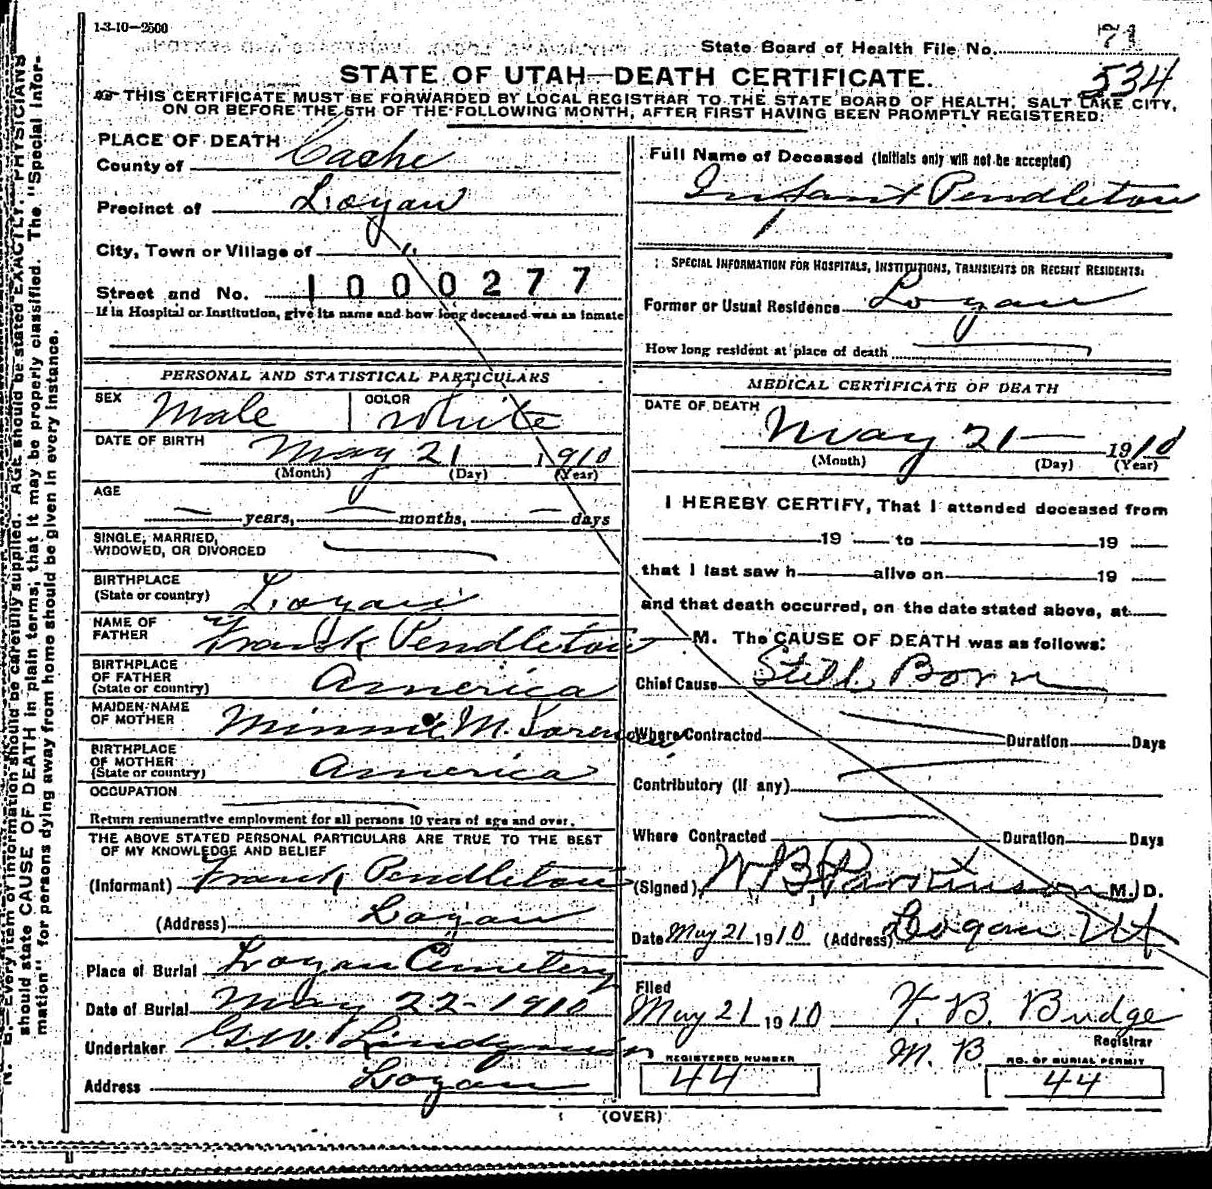 1-3-10-2500
State Board of Health File No. 71
534
STATE OF UTAH—DEATH CERTIFICATE.
THIS CERTIFICATE MUST BE FORWARDED BY LOCAL REGISTRAR TO THE STATE BOARD OF HEALTH, SALT LAKE CITY,
ON OR BEFORE THE 5TH OF THE FOLLOWING MONTH, AFTER FIRST HAVING BEEN PROMPTLY REGISTERED.
PLACE OF DEATH
County of Cache
Precinct of Logan
City, Town or Village of "
Street and No. 1000277
If in Hospital or Institution, give its name and how long deceased was an inmate
PERSONAL AND STATISTICAL PARTICULARS
SEX Male COLOR White
DATE OF BIRTH
May 21 1910
(Month) (Day) (Year)
AGE
— years, — months, — days
SINGLE, MARRIED,
WIDOWED, OR DIVORCED
BIRTHPLACE
(State or country) Logan
NAME OF
FATHER Frank Pendleton
BIRTHPLACE
OF FATHER
(State or country) America
MAIDEN NAME
OF MOTHER Minnie M.
BIRTHPLACE
OF MOTHER
(State or country) America
OCCUPATION
Return remunerative employment for all persons 10 years of age and over.
THE ABOVE STATED PERSONAL PARTICULARS ARE TRUE TO THE BEST
OF MY KNOWLEDGE AND BELIEF
(Informant) Frank Pendleton
(Address) Logan
Place of Burial Logan Cemetery
Date of Burial May 22-1910
Undertaker G.W. Lindquist
Address Logan
Full Name of Deceased (Initials only will not be accepted)
Infant Pendleton
SPECIAL INFORMATION FOR HOSPITALS, INSTITUTIONS, TRANSIENTS OR RECENT RESIDENTS:
Former or Usual Residence Logan
How long resident at place of death
MEDICAL CERTIFICATE OF DEATH
DATE OF DEATH
May 21— 1910
(Month) (Day) (Year)
I HEREBY CERTIFY, That I attended deceased from
19 to 19
that I last saw h alive on 19
and that death occurred, on the date stated above, at
M. The CAUSE OF DEATH was as follows:
Chief Cause Still Born
Where Contracted Duration Days
Contributory (if any)
Where Contracted Duration Days
(Signed) W B Parkinson M.D.
Date May 21 1910 (Address) Logan Ut
Filed
May 21 1910 F. B. Budge
Registrar
M. B.
REGISTERED NUMBER
44
NO. OF BURIAL PERMIT
44
(OVER)
N. B.—Every item of information should be carefully supplied. AGE should be stated EXACTLY. PHYSICIANS
should state CAUSE OF DEATH in plain terms, that it may be properly classified. The "Special Infor-
mation" for persons dying away from home should be given in every instance.